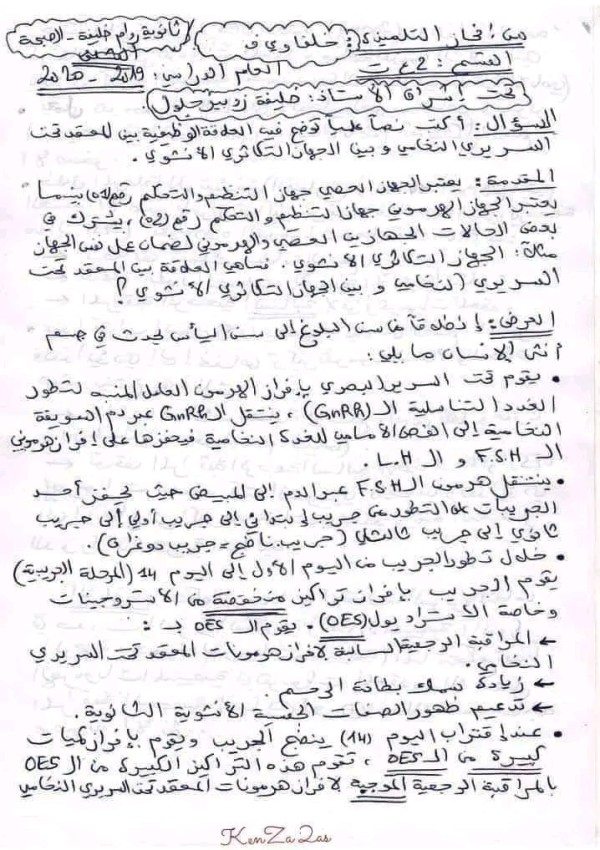 من إنجاز التلميذة: خلفاوي ف
ثانوية روام خليفة - الصبحة
القسم: 2ع ت
العام الدراسي: 2019 - 2020
تحت إشراف الأستاذ: خليفة زوبير جلول
السؤال: أكتب نصاً علمياً توضح فيه العلاقة الوظيفية بين المعقد تحت
السريري النخامي و بين الجهاز التكاثري الأنثوي.
المقدمة: يعتبر الجهاز العصبي جهاز التنظيم والتحكم رقم (01) بينما
يعتبر الجهاز الهرموني جهاز التنظيم و التحكم رقم (02)، يشترك في
بعض الحالات الجهازين العصبي والهرموني لضمان عمل نفس الجهاز
مثلا: الجهاز التكاثري الأنثوي. فما هي العلاقة بين المعقد تحت
السريري النخامي و بين الجهاز التكاثري الأنثوي؟
العرض: إنطلاقا من سن البلوغ إلى سن اليأس يحدث في جسم
أنثى الإنسان ما يلي:
• يقوم تحت السرير البصري بإفراز الهرمون العامل المنبه لتطور
الغدد التناسلية الـ (GnRH)، ينتقل الـ GnRH عبر دم السويقة
النخامية إلى الفص الأمامي للغدة النخامية فيحفزها على إفراز هرموني
الـ F.S.H و الـ L.H
• ينتقل هرمون الـ F.S.H عبر الدم إلى المبيض حيث يحفز أحد
الجريبات على التطور من جريب إبتدائي إلى جريب أولي إلى جريب
ثانوي إلى جريب ثالثي (جريب ناضج = جريب دوغراف).
• خلال تطور الجريب من اليوم الأول إلى اليوم 14 (المرحلة الجريبية)
يقوم الجريب بإفراز تراكيز منخفضة من الاستروجينات
وخاصة الاستراديول (OES). يقوم الـ OES بـ:
← المراقبة الرجعية السالبة لإفراز هرمونات المعقد تحت السريري
النخامي.
← زيادة سمك بطانة الرحم.
← تدعيم ظهور الصفات الجنسية الأنثوية الثانوية.
• عند إقتراب اليوم (14) ينضج الجريب ويقوم بإفراز كميات
كبيرة من الـ OES، تقوم هذه التراكيز الكبيرة من الـ OES
بالمراقبة الرجعية الموجبة لإفراز هرمونات المعقد تحت السريري النخامي
KenZa 2as